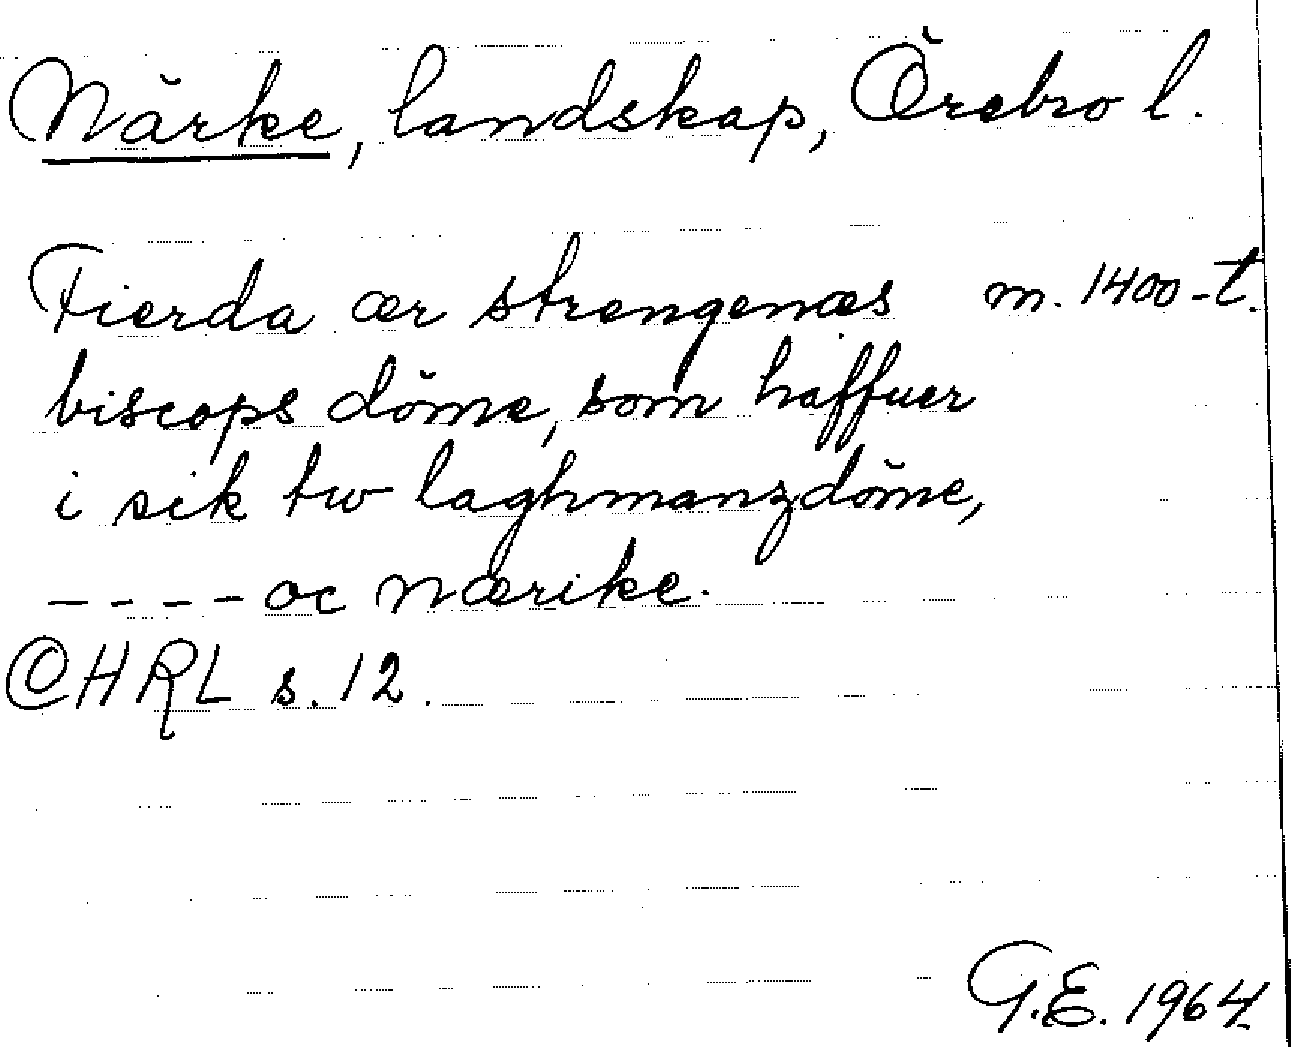 Närke, landskap, Örebro l.
Fierda ær strengenæs m. 1400-t.
biscops döme, som haffuer
i sik tw laghmanzdöme,
---- oc nærike.
CHRL s. 12.
G.E. 1964.